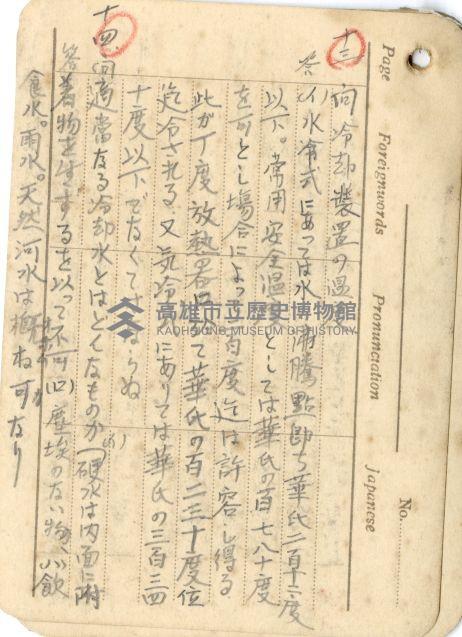 Page Foreignwords Pronunciation Japanese
No.
十三 問冷却装置の温
答 (イ)水冷式にあっては水の沸騰點即ち華氏二百十二度
以下。常用安全温度としては華氏の百七八十度
を可とし場合によって二百度迄は許容し得る
此が丁度放熱器に て華氏の百二三十度位
迄冷される 又 気冷 にありては華氏の三百三四
十度以下でなくてはならぬ
十四 問適當なる冷却水とはどんなものか (硬水は内面に附
答 着物を生ずるを以って不可(ロ) 塵埃のない物、ハ飲
食水。雨水。天然河水は概ね可なり
高雄市立歷史博物館
KAOHSIUNG MUSEUM OF HISTORY